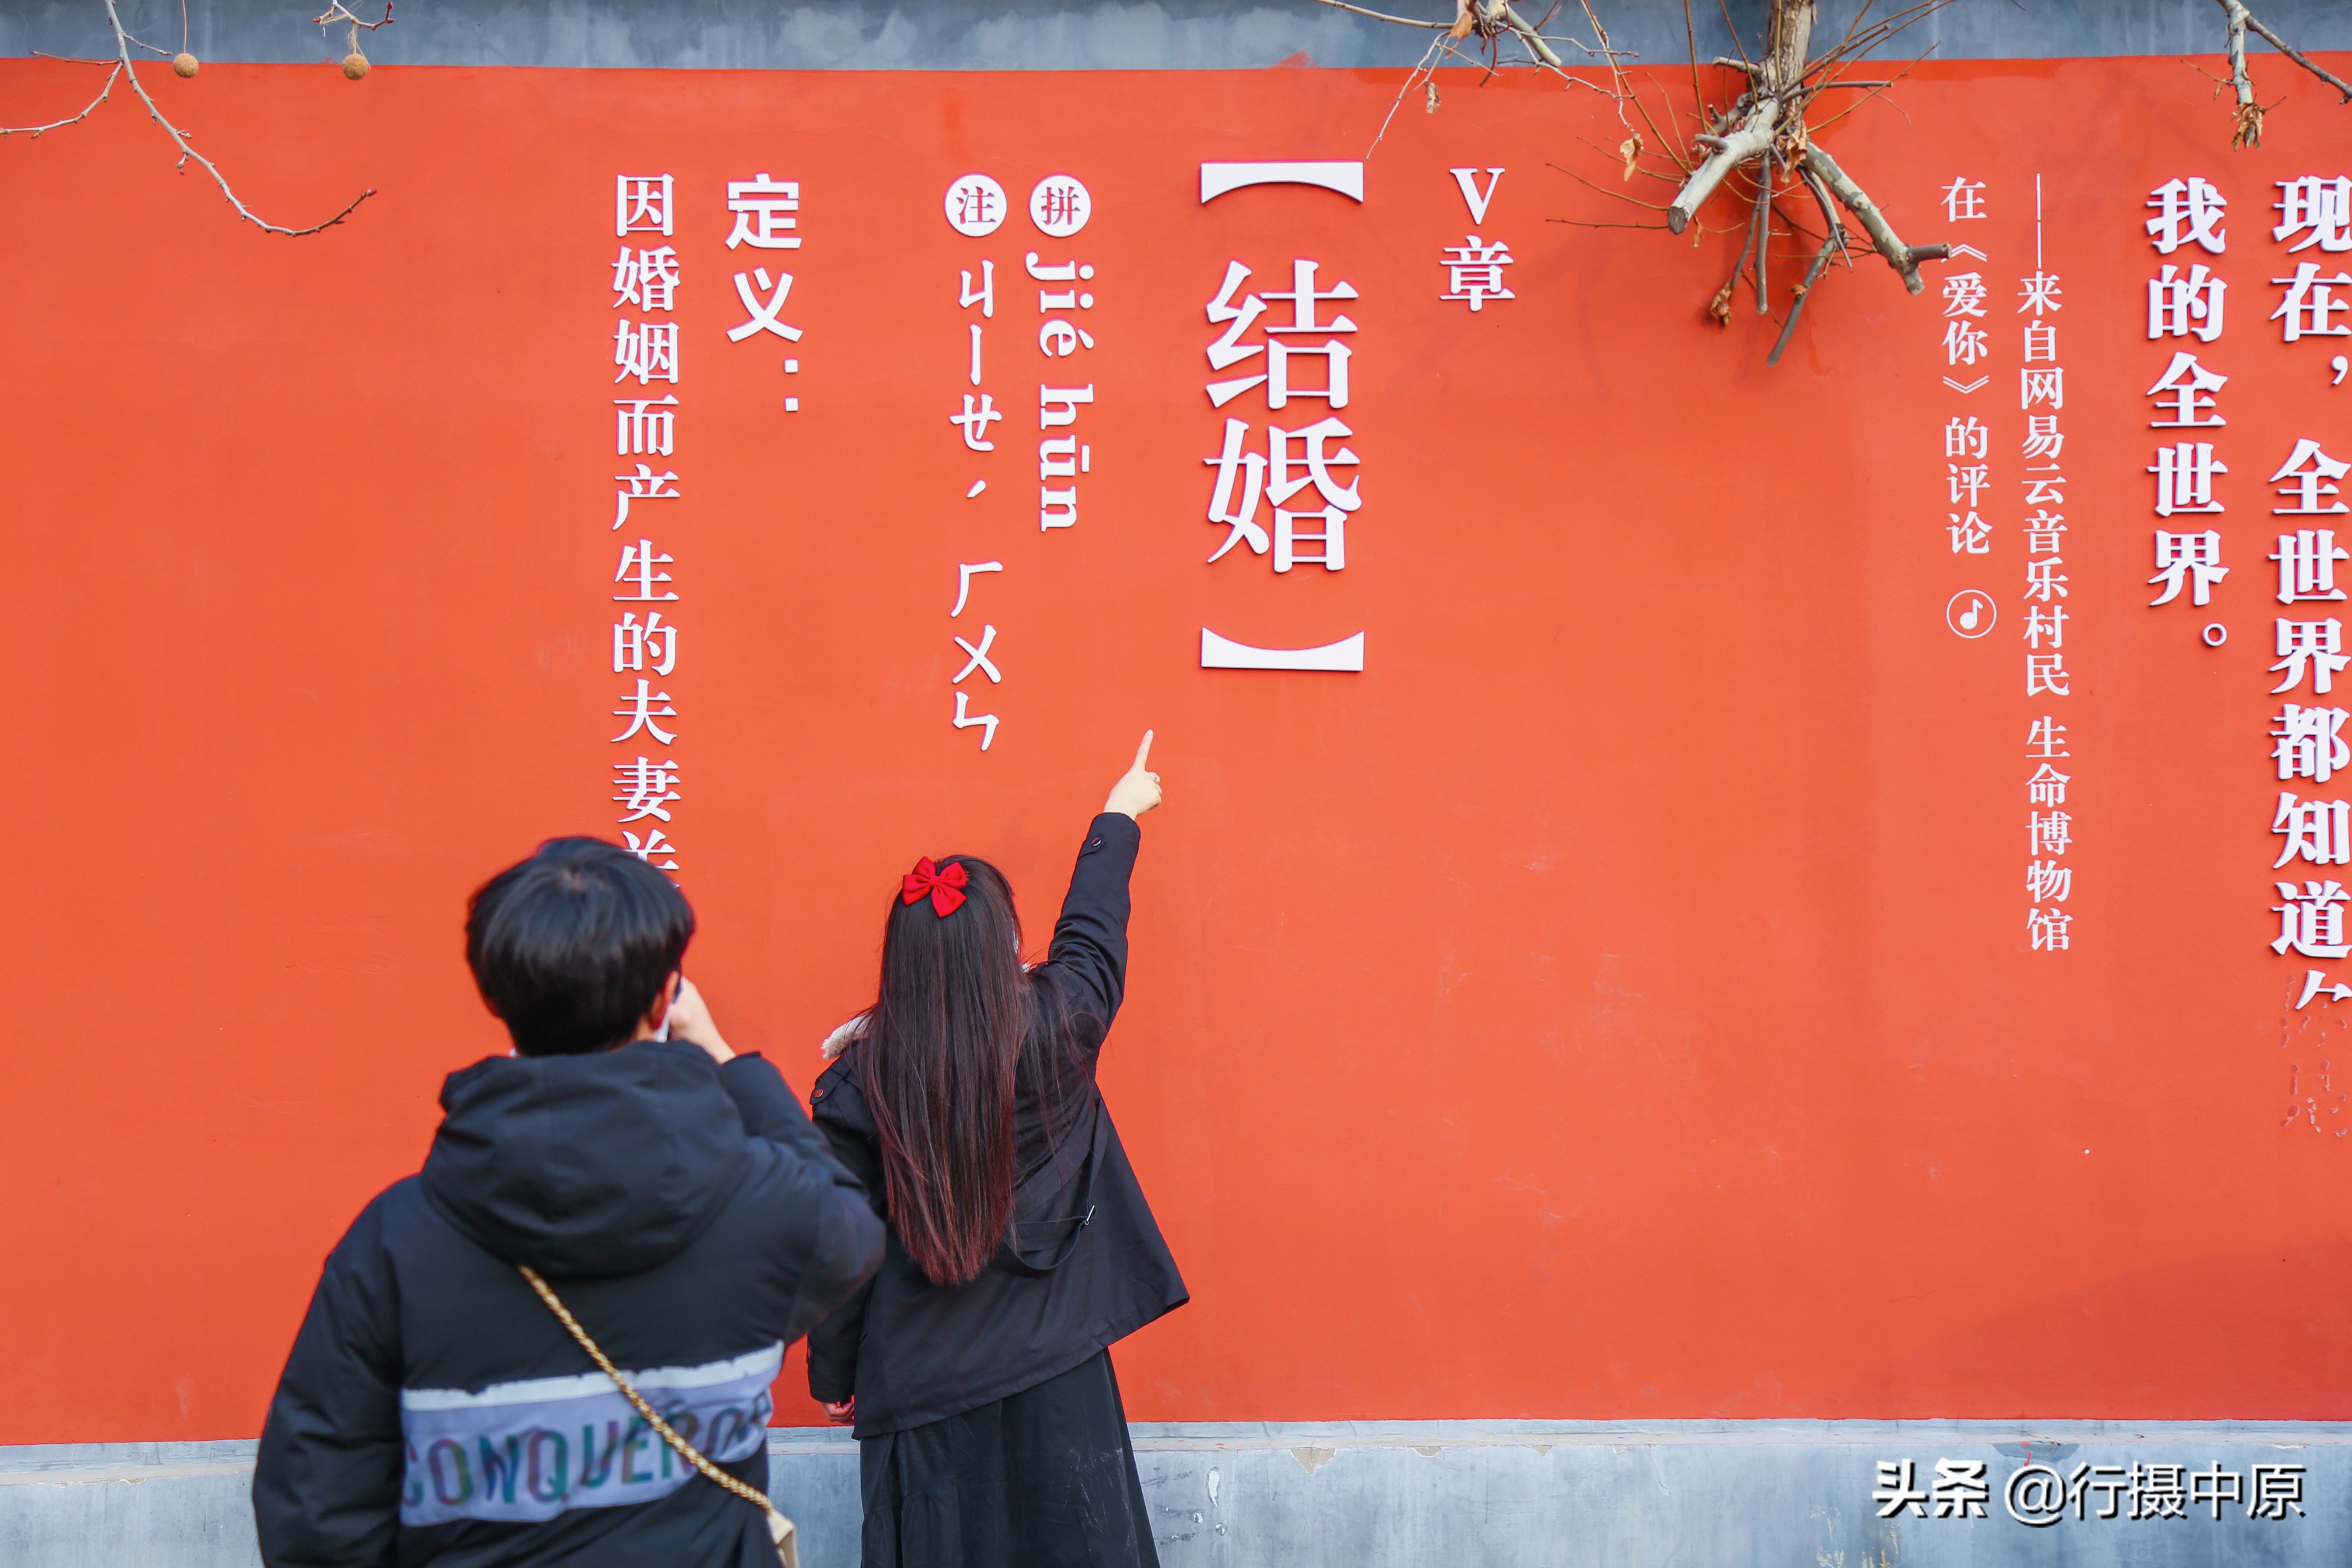 现在，全世界都知道
我的全世界。
——来自网易云音乐村民 生命博物馆
在《爱你》的评论
V章
【结婚】
拼 jié hūn
注 ㄐㄧㄝˊ ㄏㄨㄣ
定义：
因婚姻而产生的夫妻关
CONQUEROR
头条 @行摄中原